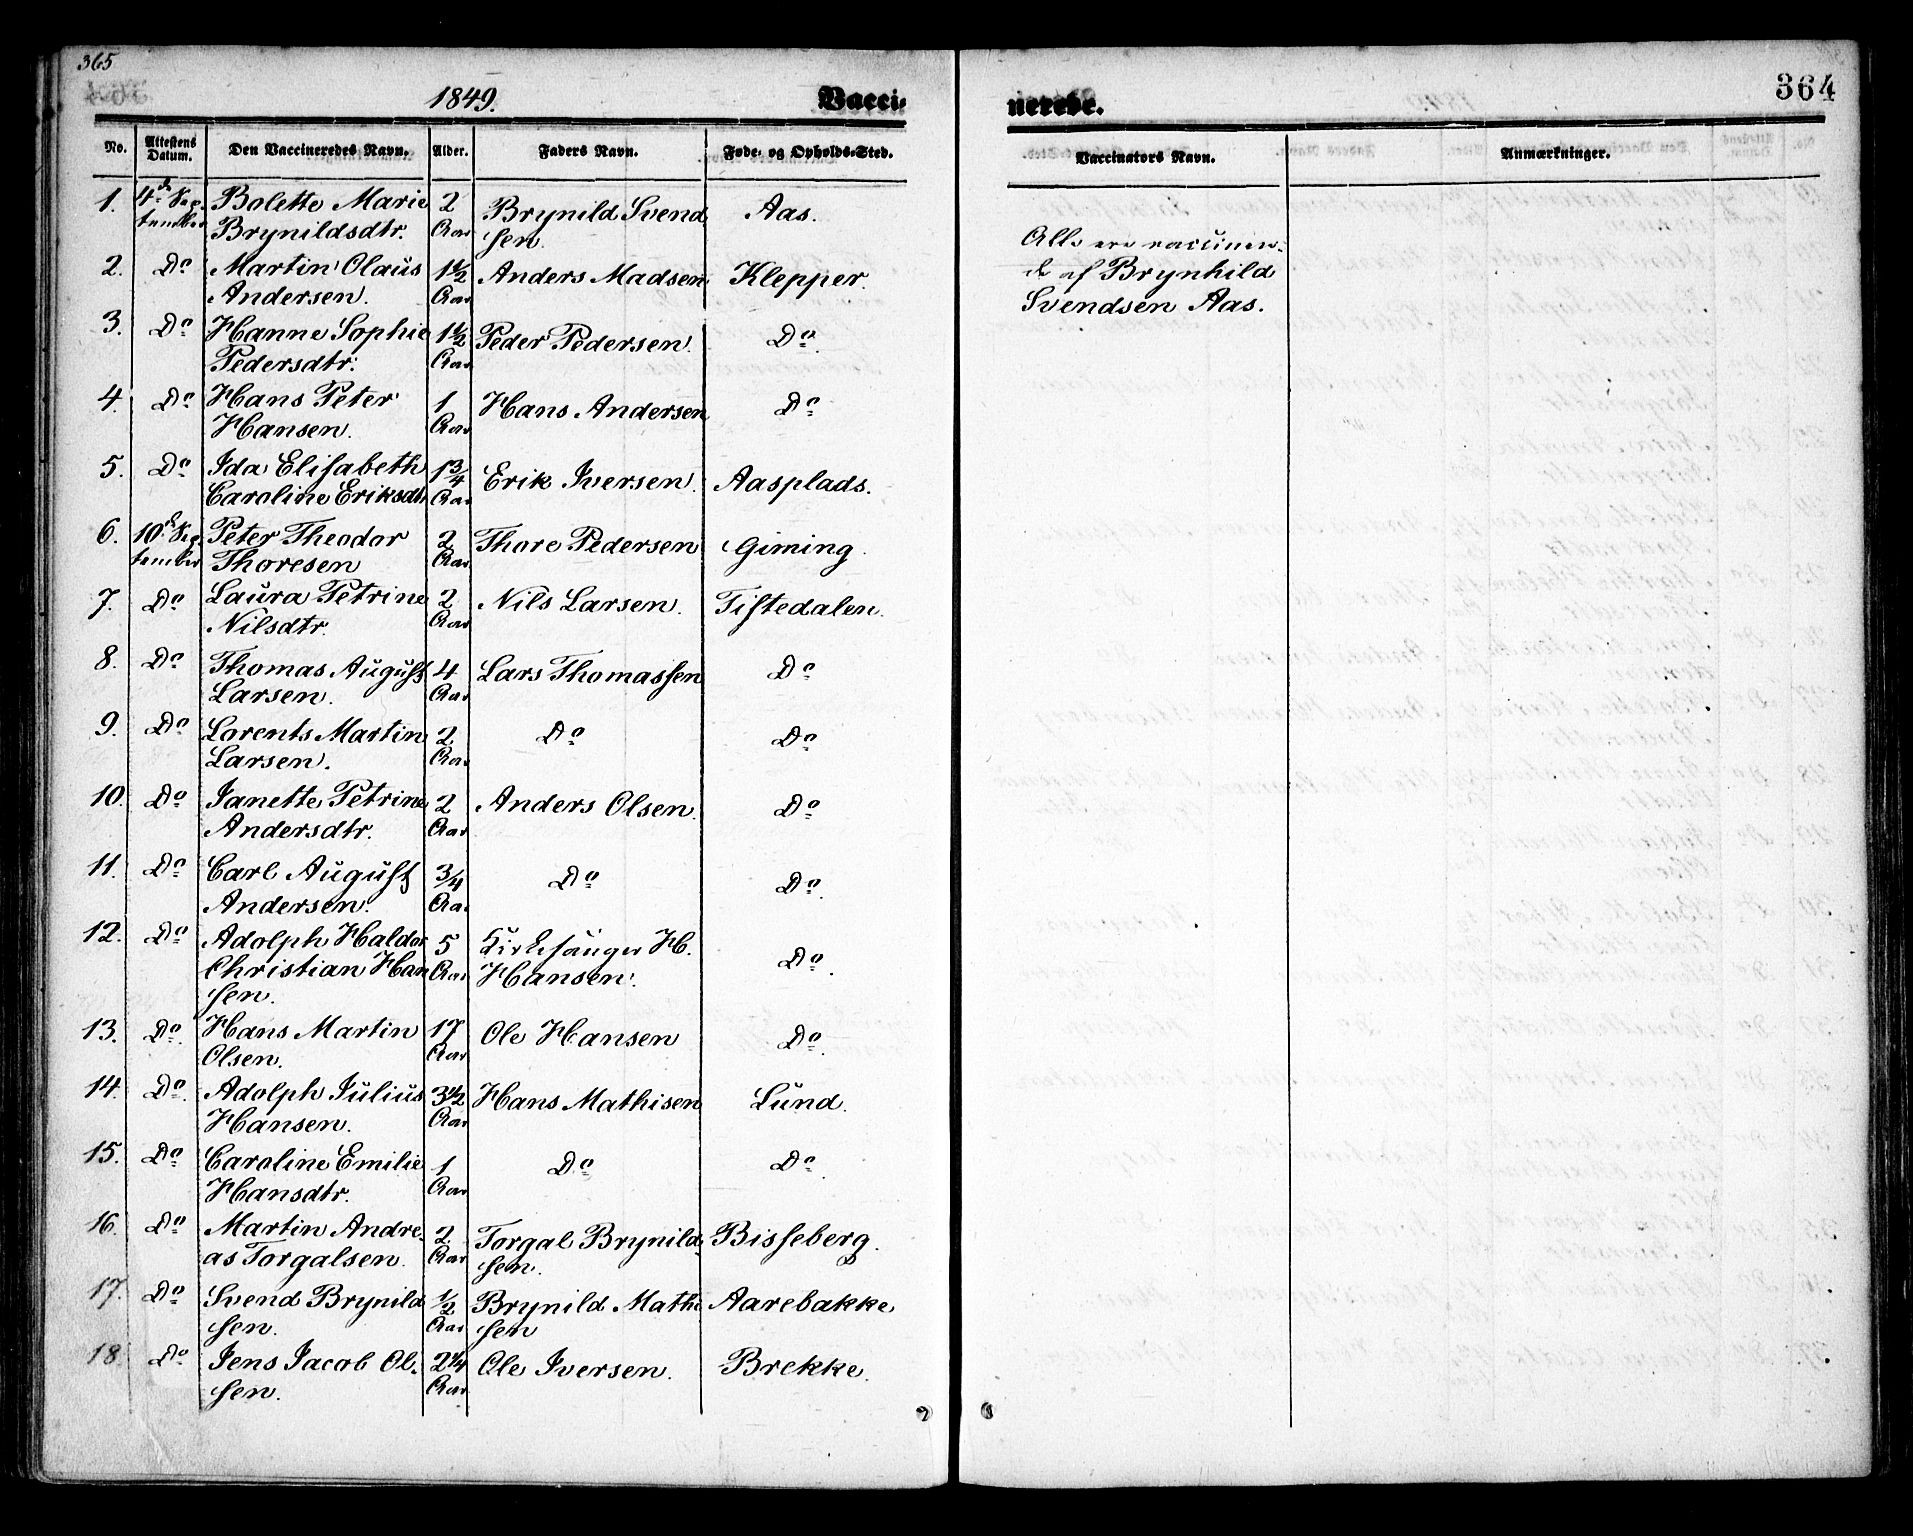 365
1849.
Vacci-
No. Attestens Datum. Den Vaccineredes Navn. Alder. Faders Navn. Føde- og Opholds-Sted.
1. 4de Sep- Bolette Marie 2 Brynild Svend Aas.
tember Brynildsdtr. Aar sen.
2. Do Martin Olaus 1 1/2 Anders Madsen Klepper.
Andersen. Aar
3. Do Hanne Sophie 1 1/2 Peder Pedersen. Do.
Pedersdtr. Aar
4. Do Hans Peter 1 Hans Andersen Do
Hansen. Aar
5. Do Ida Elisabeth 1 3/4 Erik Iversen. Aasplads.
Caroline Eriksdtr Aar
6. 10de Sep- Peter Theodor 2 Thore Pedersen Giming.
tember Thoresen Aar
7. Do Laura Petrine 2 Nils Larsen. Tistedalen.
Nilsdtr. Aar
8. Do Thomas August 4 Lars Thomassen Do
Larsen. Aar
9. Do Lorents Martin 2 Do Do
Larsen. Aar
10. Do Janette Petrine 2 Anders Olsen. Do
Andersdtr. Aar
11. Do Carl August 3/4 Do Do.
Andersen. Aa.
12. Do Adolph Haldor 5 Kirkesanger H. Do.
Christian Han Aar Hansen.
sen.
13. Do. Hans Martin 17 Ole Hansen Do.
Olsen. Aar
14. Do. Adolph Julius 3 1/2 Hans Mathisen Lund.
Hansen. Aar
15. Do Caroline Emilie 1 Do Do.
Hansdtr. Aar
16. Do Martin Andre- 2 Torgal Brynild- Bisseberg.
as Torgalsen. Aar sen.
17. Do Svend Brynild 1/2 Brynild Mathi Aarebakke
sen. Aar sen
18 Do Jens Jacob Ol- 2 1/4 Ole Iversen. Brekke.
sen. Aar
364
nerede.
Vaccinators Navn. Anmærkninger.
Alle ere vaccinere-
de af Brynhild
Svendsen Aas.